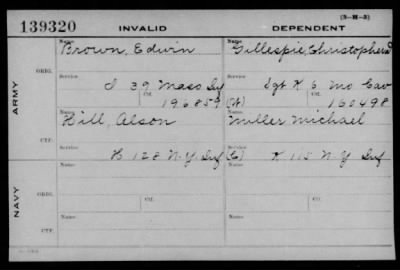 (3-H-3)
139320 INVALID DEPENDENT
Name: Brown, Edwin Name: Gillespie, Christopher
ARMY
ORIG.
Service: I 39 Mass Inf Service: Sgt K 6 Mo Cav
Ctf. 196859 (W) Ctf. 160498
CTF.
Name: Hill, Alson Name: Miller Michael
Service: B 128 N.Y. Inf (C) Service: K 115 N Y Inf
NAVY
ORIG.
Name: Name:
Service: Ctf. Service: Ctf.
CTF.
Name: Name:
Service: Service: